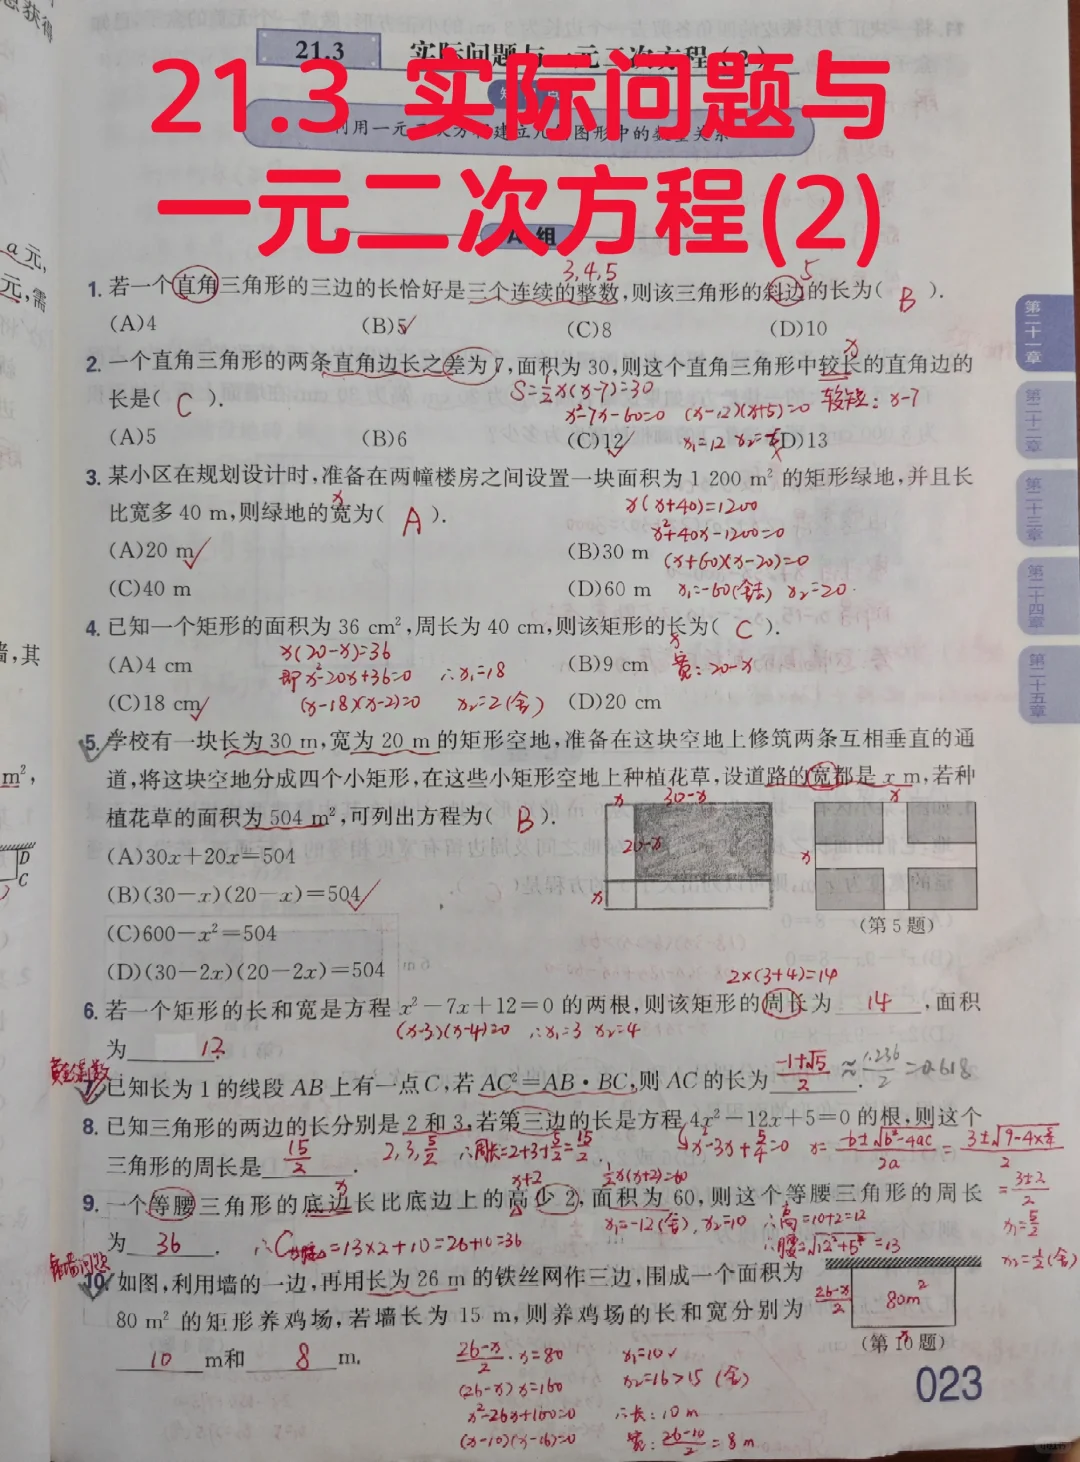 21.3 实际问题与一元二次方程(2)
21.3 实际问题与
一元二次方程(2)
利用一元二次方程建立几何图形中的数量关系
A 组
3,4,5
5
1. 若一个直角三角形的三边的长恰好是三个连续的整数,则该三角形的斜边的长为( B ).
(A)4 (B)5 (C)8 (D)10
x
2. 一个直角三角形的两条直角边长之差为7,面积为30,则这个直角三角形中较长的直角边的
长是( C ).
S=½x(x-7)=30
较短: x-7
x²-7x-60=0 (x-12)(x+5)=0
(A)5 (B)6 (C)12 (D)13
x₁=12 x₂=-5
3. 某小区在规划设计时,准备在两幢楼房之间设置一块面积为1 200 m²的矩形绿地,并且长
x
比宽多40 m,则绿地的宽为( A ).
x(x+40)=1200
x²+40x-1200=0
(A)20 m (B)30 m
(x+60)(x-20)=0
(C)40 m (D)60 m
x₁=-60(舍去) x₂=20
4. 已知一个矩形的面积为36 cm²,周长为40 cm,则该矩形的长为( C ).
x
x(20-x)=36
(A)4 cm (B)9 cm
宽: 20-x
即x²-20x+36=0 ∴x₁=18
(C)18 cm (D)20 cm
(x-18)(x-2)=0 x₂=2(舍)
5. 学校有一块长为30 m,宽为20 m的矩形空地,准备在这块空地上修筑两条互相垂直的通
道,将这块空地分成四个小矩形,在这些小矩形空地上种植花草,设道路的宽都是x m,若种
植花草的面积为504 m²,可列出方程为( B ).
x 30-x
20-x
x
x
x
(第5题)
(A)30x+20x=504
(B)(30-x)(20-x)=504
(C)600-x²=504
(D)(30-2x)(20-2x)=504
2×(3+4)=14
6. 若一个矩形的长和宽是方程x²-7x+12=0的两根,则该矩形的周长为 14 ,面积
为 12 .
(x-3)(x-4)=0 ∴x₁=3 x₂=4
7. 已知长为1的线段AB上有一点C,若AC²=AB·BC,则AC的长为 (-1+√5)/2 .
≈1.236/2=0.618
8. 已知三角形的两边的长分别是2和3,若第三边的长是方程4x²-12x+5=0的根,则这个
三角形的周长是 15/2 .
2,3,5/2 ∴周长=2+3+5/2=15/2
x²-3x+5/4=0 x=(-b±√(b²-4ac))/2a=(3±√(9-4×5/4))/2
=(3±2)/2
x₁=5/2
x₂=½(舍)
x
x+2
½x(x+2)=60
9. 一个等腰三角形的底边长比底边上的高少2,面积为60,则这个等腰三角形的周长
为 36 .
x₁=-12(舍), x₂=10 ∴高=10+2=12
∴腰=√(12²+5²)=13
=13×2+10=26+10=36
靠墙问题
10. 如图,利用墙的一边,再用长为26 m的铁丝网作三边,围成一个面积为
80 m²的矩形养鸡场,若墙长为15 m,则养鸡场的长和宽分别为
10 m和 8 m.
(26-x)/2
80m²
x
(第10题)
(26-x)/2·x=80 x₁=10
(26-x)x=160 x₂=16>15 (舍)
x²-26x+160=0 ∴长: 10 m
(x-10)(x-16)=0 宽: (26-10)/2=8 m
023
第二十一章
第二十二章
第二十三章
第二十四章
第二十五章
a元,
元,需
墙,其
m²,
D
C